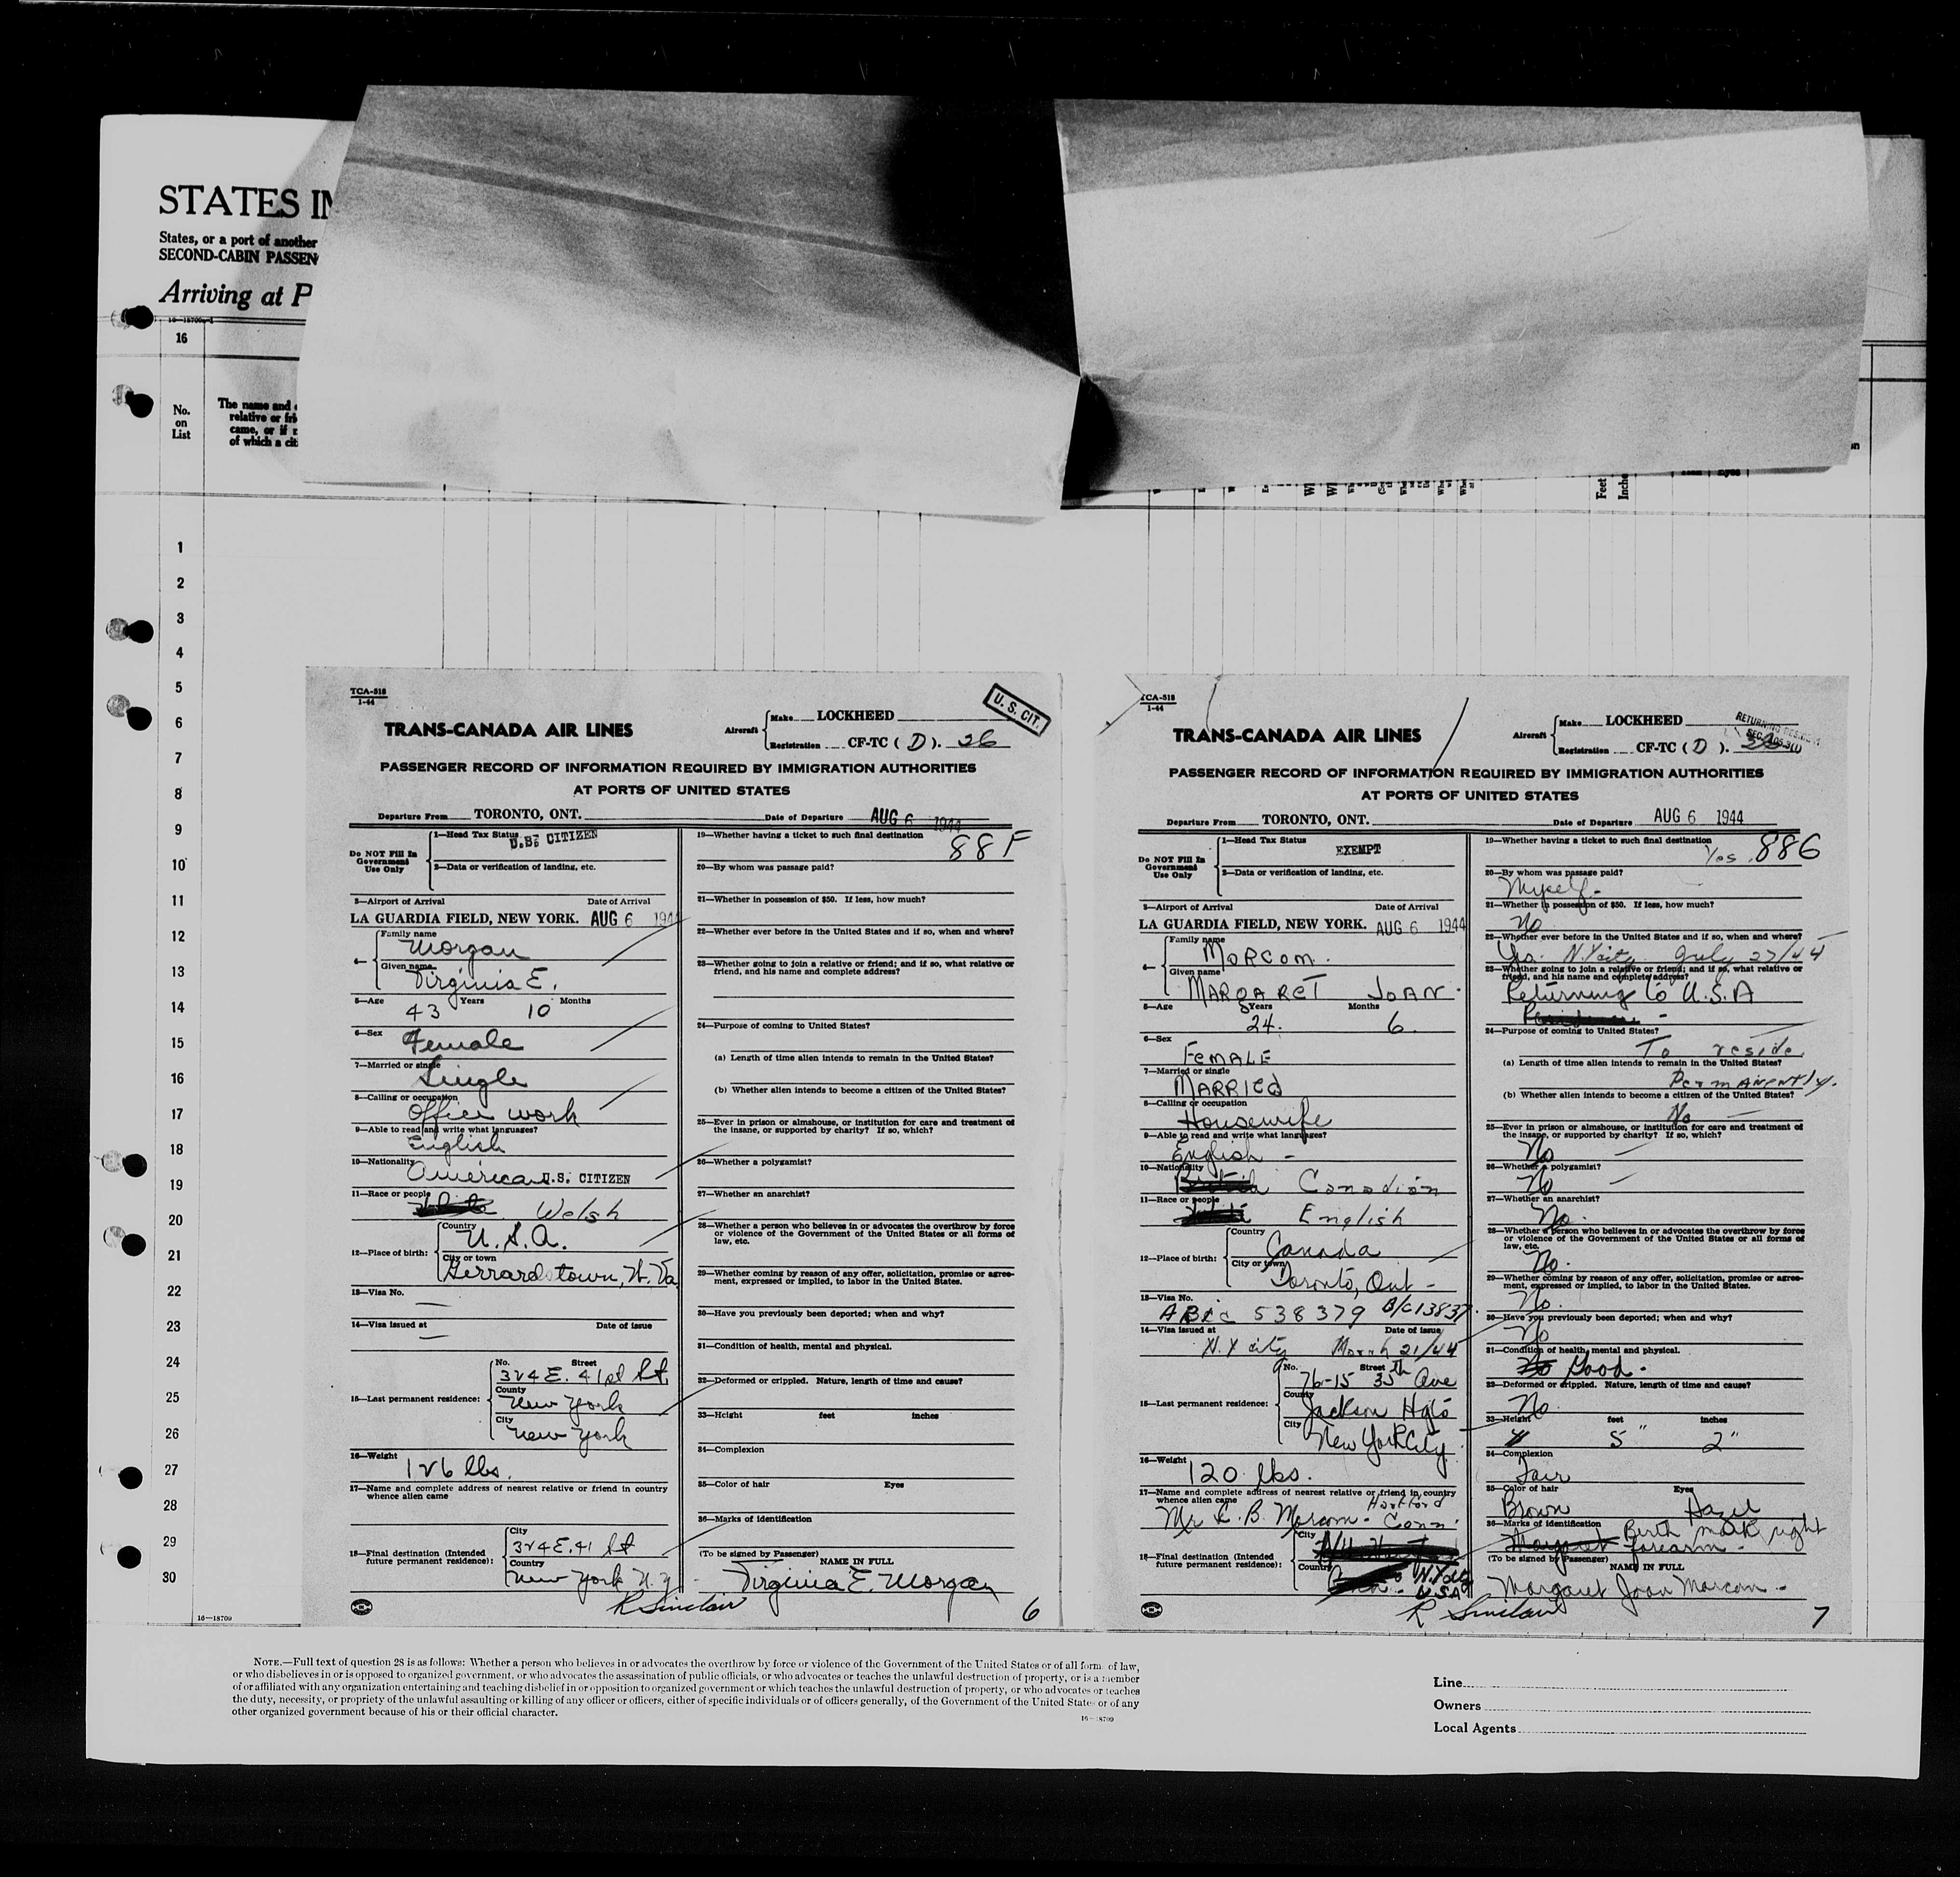 STATES IN
States, or a port of another
SECOND-CABIN PASSEN
Arriving at P
16—18709
16
No.
on
List
The name and
relative or fri
came, or if
of which a cit
Feet
Inche
Eyes
1
2
3
4
5
6
7
8
9
10
11
12
13
14
15
16
17
18
19
20
21
22
23
24
25
26
27
28
29
30
16—18709
TCA-518
1-44
U. S. CIT.
TRANS-CANADA AIR LINES
Aircraft
Make LOCKHEED
Registration CF-TC ( D ). 26
PASSENGER RECORD OF INFORMATION REQUIRED BY IMMIGRATION AUTHORITIES
AT PORTS OF UNITED STATES
Departure From TORONTO, ONT. Date of Departure AUG 6 1944
Do NOT Fill In
Government
Use Only
1—Head Tax Status U.S. CITIZEN
2—Data or verification of landing, etc.
3—Airport of Arrival Date of Arrival
LA GUARDIA FIELD, NEW YORK. AUG 6 1944
4—
Family name
Morgan
Given name
Virginia E.
5—Age Years Months
43 10
6—Sex
Female
7—Married or single
Single
8—Calling or occupation
Office work
9—Able to read and write what languages?
English
10—Nationality
American U.S. CITIZEN
11—Race or people
Welsh
12—Place of birth:
Country
U.S.A.
City or town
Gerrardstown, W. Va.
13—Visa No.
—
14—Visa issued at Date of issue
—
15—Last permanent residence:
No. Street
324 E. 41st St.
County
New York
City
New York
16—Weight
126 lbs.
17—Name and complete address of nearest relative or friend in country
whence alien came
18—Final destination (Intended
future permanent residence):
City
324 E. 41 St
Country
New York N.Y
19—Whether having a ticket to such final destination
88F
20—By whom was passage paid?
21—Whether in possession of $50. If less, how much?
22—Whether ever before in the United States and if so, when and where?
23—Whether going to join a relative or friend; and if so, what relative or
friend, and his name and complete address?
24—Purpose of coming to United States?
(a) Length of time alien intends to remain in the United States?
(b) Whether alien intends to become a citizen of the United States?
25—Ever in prison or almshouse, or institution for care and treatment of
the insane, or supported by charity? If so, which?
26—Whether a polygamist?
27—Whether an anarchist?
28—Whether a person who believes in or advocates the overthrow by force
or violence of the Government of the United States or all forms of
law, etc.
29—Whether coming by reason of any offer, solicitation, promise or agree-
ment, expressed or implied, to labor in the United States.
30—Have you previously been deported; when and why?
31—Condition of health, mental and physical.
32—Deformed or crippled. Nature, length of time and cause?
33—Height feet inches
34—Complexion
35—Color of hair Eyes
36—Marks of identification
(To be signed by Passenger)
NAME IN FULL
Virginia E. Morgan
R Sinclair
6
TCA-518
1-44
RETURNING RESIDENT
TRANS-CANADA AIR LINES
Aircraft
Make LOCKHEED
Registration CF-TC ( D ).
PASSENGER RECORD OF INFORMATION REQUIRED BY IMMIGRATION AUTHORITIES
AT PORTS OF UNITED STATES
Departure From TORONTO, ONT. Date of Departure AUG 6 1944
Do NOT Fill In
Government
Use Only
1—Head Tax Status
EXEMPT
2—Data or verification of landing, etc.
3—Airport of Arrival Date of Arrival
LA GUARDIA FIELD, NEW YORK. AUG 6 1944
4—
Family name
MORCOM.
Given name
MARGARET JOAN.
5—Age Years Months
24. 6.
6—Sex
FEMALE
7—Married or single
MARRIED
8—Calling or occupation
Housewife
9—Able to read and write what languages?
English —
10—Nationality
British Canadian
11—Race or people
English
12—Place of birth:
Country
Canada
City or town
Toronto, Ont —
13—Visa No.
538379 B/C13837.
14—Visa issued at Date of issue
N.Y city March 21/44
15—Last permanent residence:
No. Street
76-15 35th Ave
County
Jackson Hgts
City
New York City
16—Weight
120 lbs.
17—Name and complete address of nearest relative or friend in country
whence alien came Hartford
Mr C. B. Morcom - Conn.
18—Final destination (Intended
future permanent residence):
City
Country
N.York
U.S.A
19—Whether having a ticket to such final destination
Yes. 886
20—By whom was passage paid?
Myself-
21—Whether in possession of $50. If less, how much?
No
22—Whether ever before in the United States and if so, when and where?
Yes. N.Y city July 27/44
23—Whether going to join a relative or friend; and if so, what relative or
friend, and his name and complete address?
Returning to U.S.A
24—Purpose of coming to United States?
To reside
(a) Length of time alien intends to remain in the United States?
PermANENtly.
(b) Whether alien intends to become a citizen of the United States?
No —
25—Ever in prison or almshouse, or institution for care and treatment of
the insane, or supported by charity? If so, which?
No —
26—Whether a polygamist?
No —
27—Whether an anarchist?
No.
28—Whether a person who believes in or advocates the overthrow by force
or violence of the Government of the United States or all forms of
law, etc.
No.
29—Whether coming by reason of any offer, solicitation, promise or agree-
ment, expressed or implied, to labor in the United States.
No.
30—Have you previously been deported; when and why?
No
31—Condition of health, mental and physical.
No Good.
32—Deformed or crippled. Nature, length of time and cause?
No.
33—Height feet inches
5" 2"
34—Complexion
Fair
35—Color of hair Eyes
Brown Hazel
36—Marks of identification Birth mark right
Margaret forearm -
(To be signed by Passenger)
NAME IN FULL
Margaret Joan Morcom -
R Sinclair
7
NOTE.—Full text of question 28 is as follows: Whether a person who believes in or advocates the overthrow by force or violence of the Government of the United States or of all forms of law,
or who disbelieves in or is opposed to organized government, or who advocates the assassination of public officials, or who advocates or teaches the unlawful destruction of property, or is a member
of or affiliated with any organization entertaining and teaching disbelief in or opposition to organized government or which teaches the unlawful destruction of property, or who advocates or teaches
the duty, necessity, or propriety of the unlawful assaulting or killing of any officer or officers, either of specific individuals or of officers generally, of the Government of the United States or of any
other organized government because of his or their official character.
16—18709
Line
Owners
Local Agents